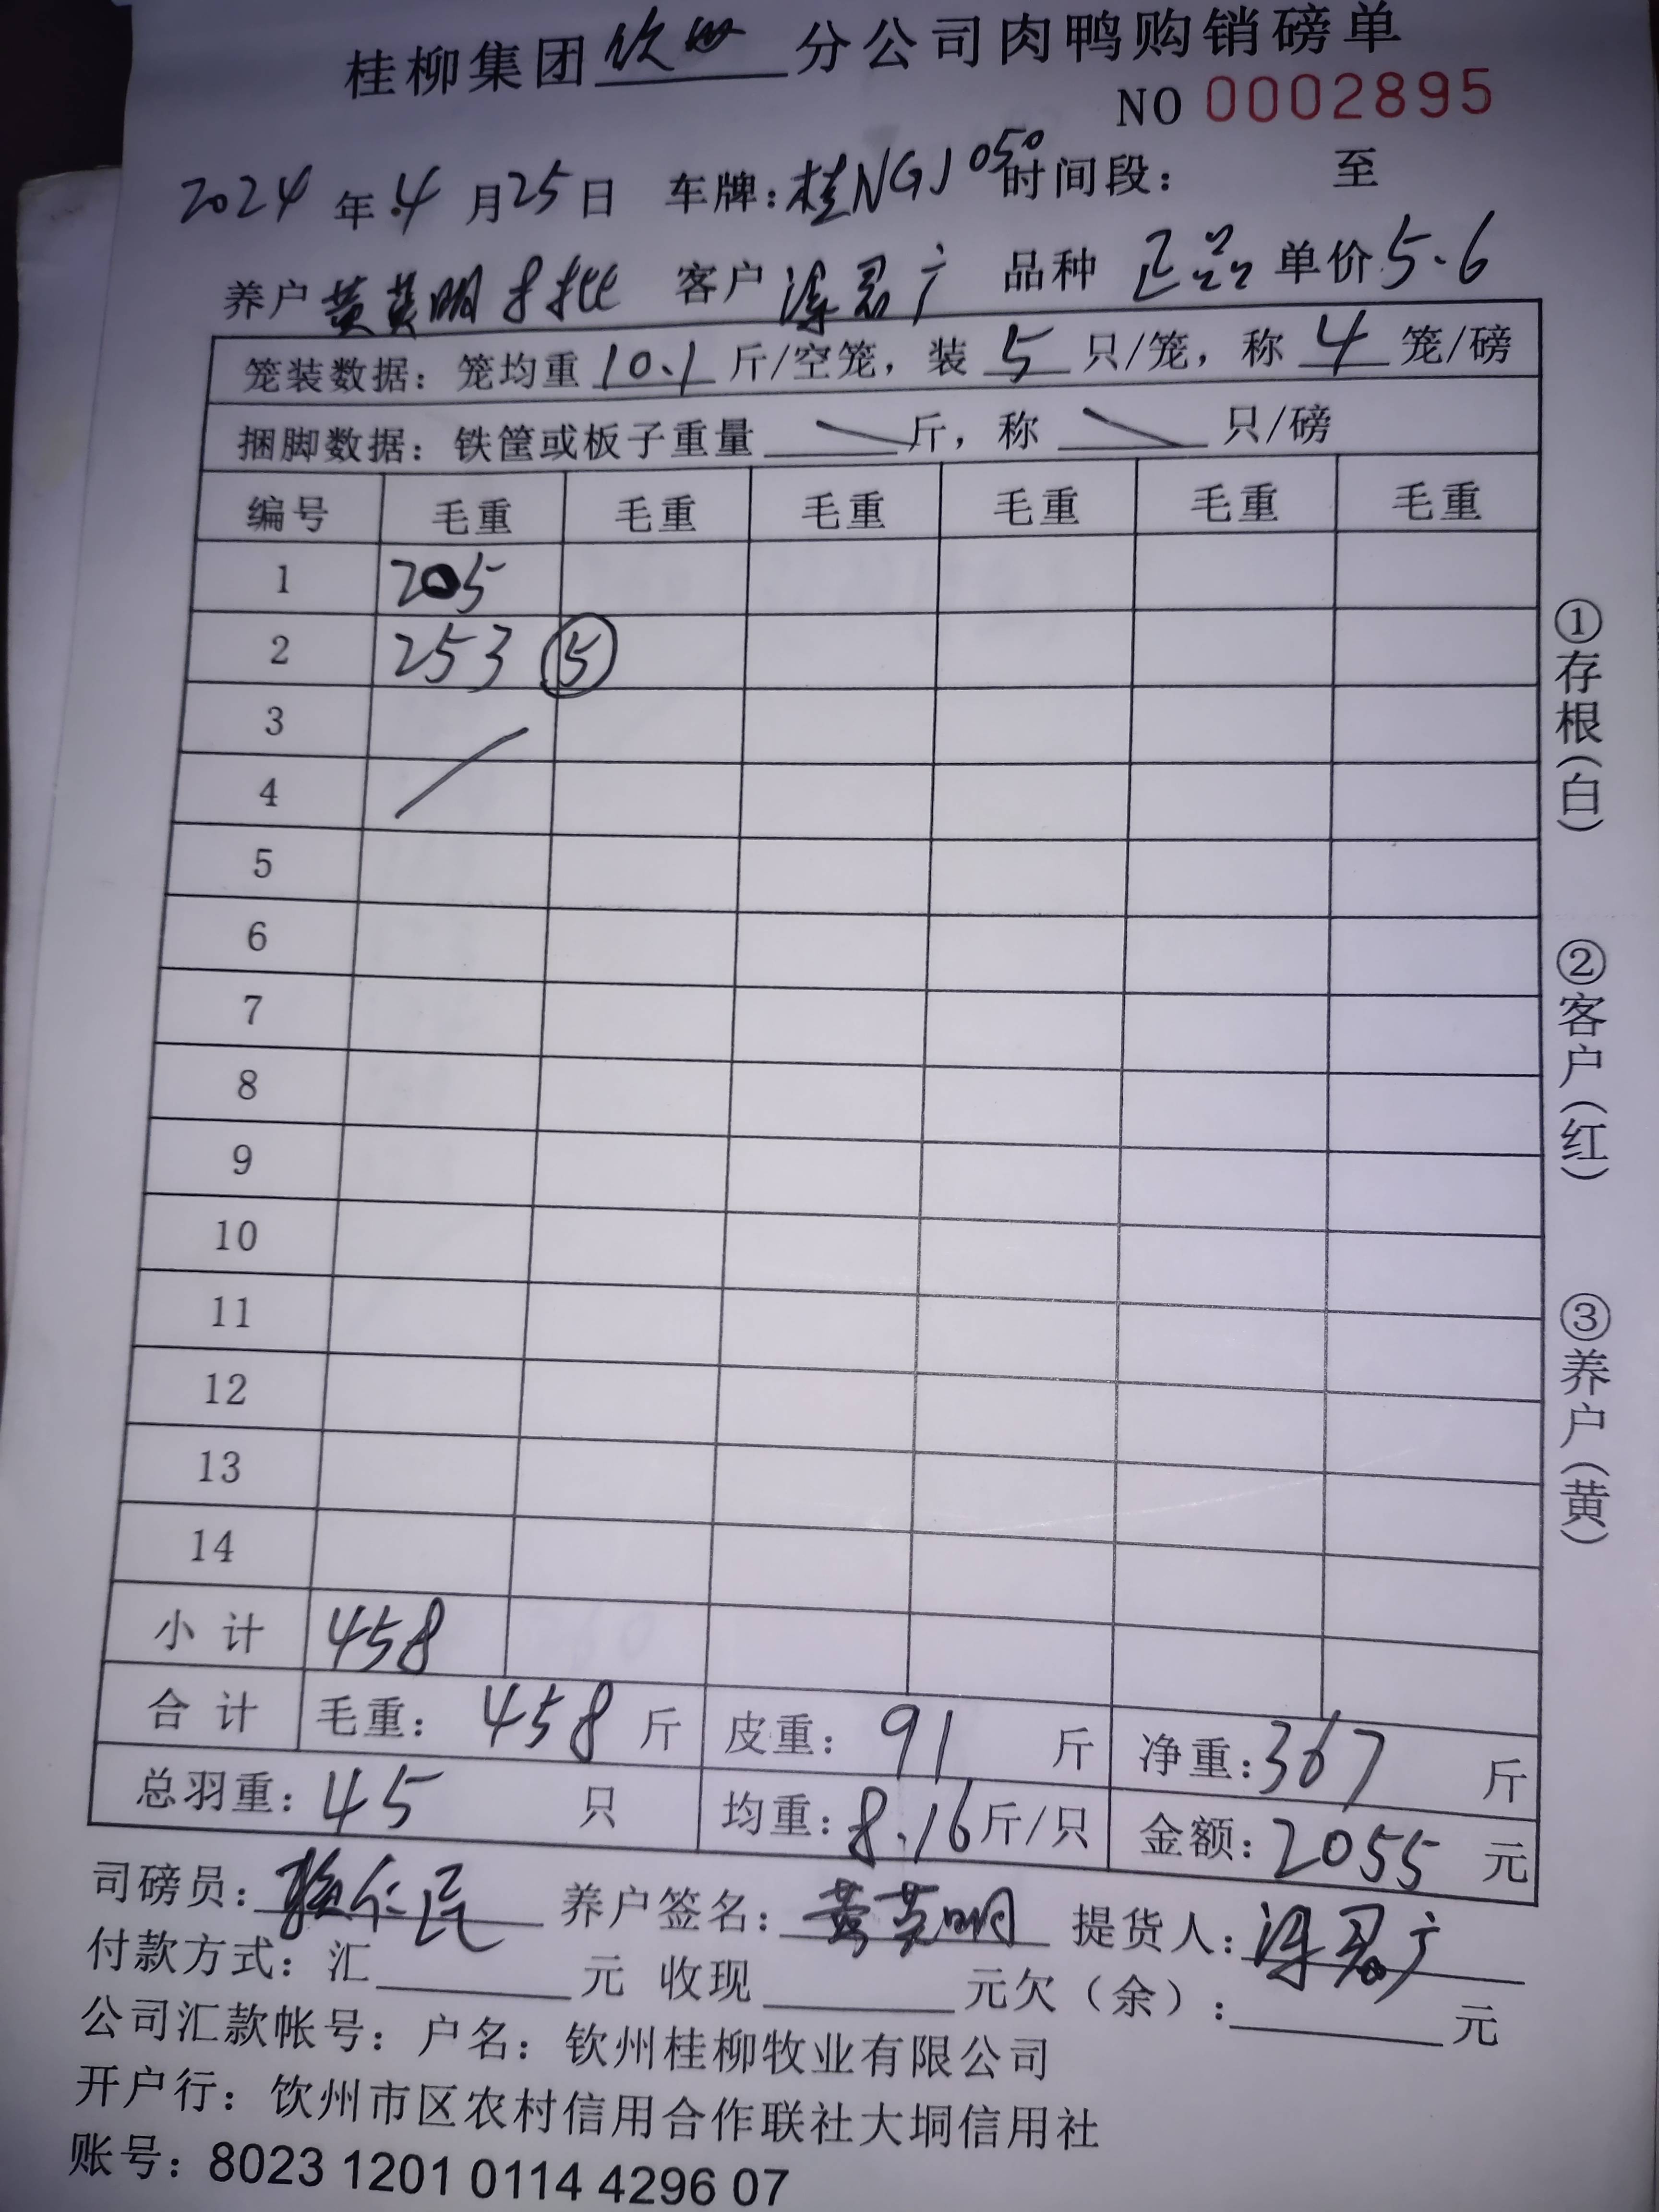 桂柳集团钦州分公司肉鸭购销磅单
NO 0002895
2024年4月25日 车牌：桂NGJ050 时间段： 至
养户 黄英明 客户 广 品种 正品 单价 5.6
笼装数据：笼均重 10.1 斤/空笼，装 5 只/笼，称 4 笼/磅
捆脚数据：铁筐或板子重量 斤，称 只/磅
编号 毛重 毛重 毛重 毛重 毛重 毛重
1 205
2 253 ⑤
3
4
5
6
7
8
9
10
11
12
13
14
小计 458
合计 毛重：458 斤 皮重：91 斤 净重：367 斤
总羽重：45 只 均重：8.16 斤/只 金额：2055 元
司磅员： 养户签名：黄英明 提货人： 广
付款方式：汇 元 收现 元欠（余）： 元
公司汇款帐号：户名：钦州桂柳牧业有限公司
开户行：钦州市区农村信用合作联社大垌信用社
账号：8023 1201 0114 4296 07
①存根（白）
②客户（红）
③养户（黄）